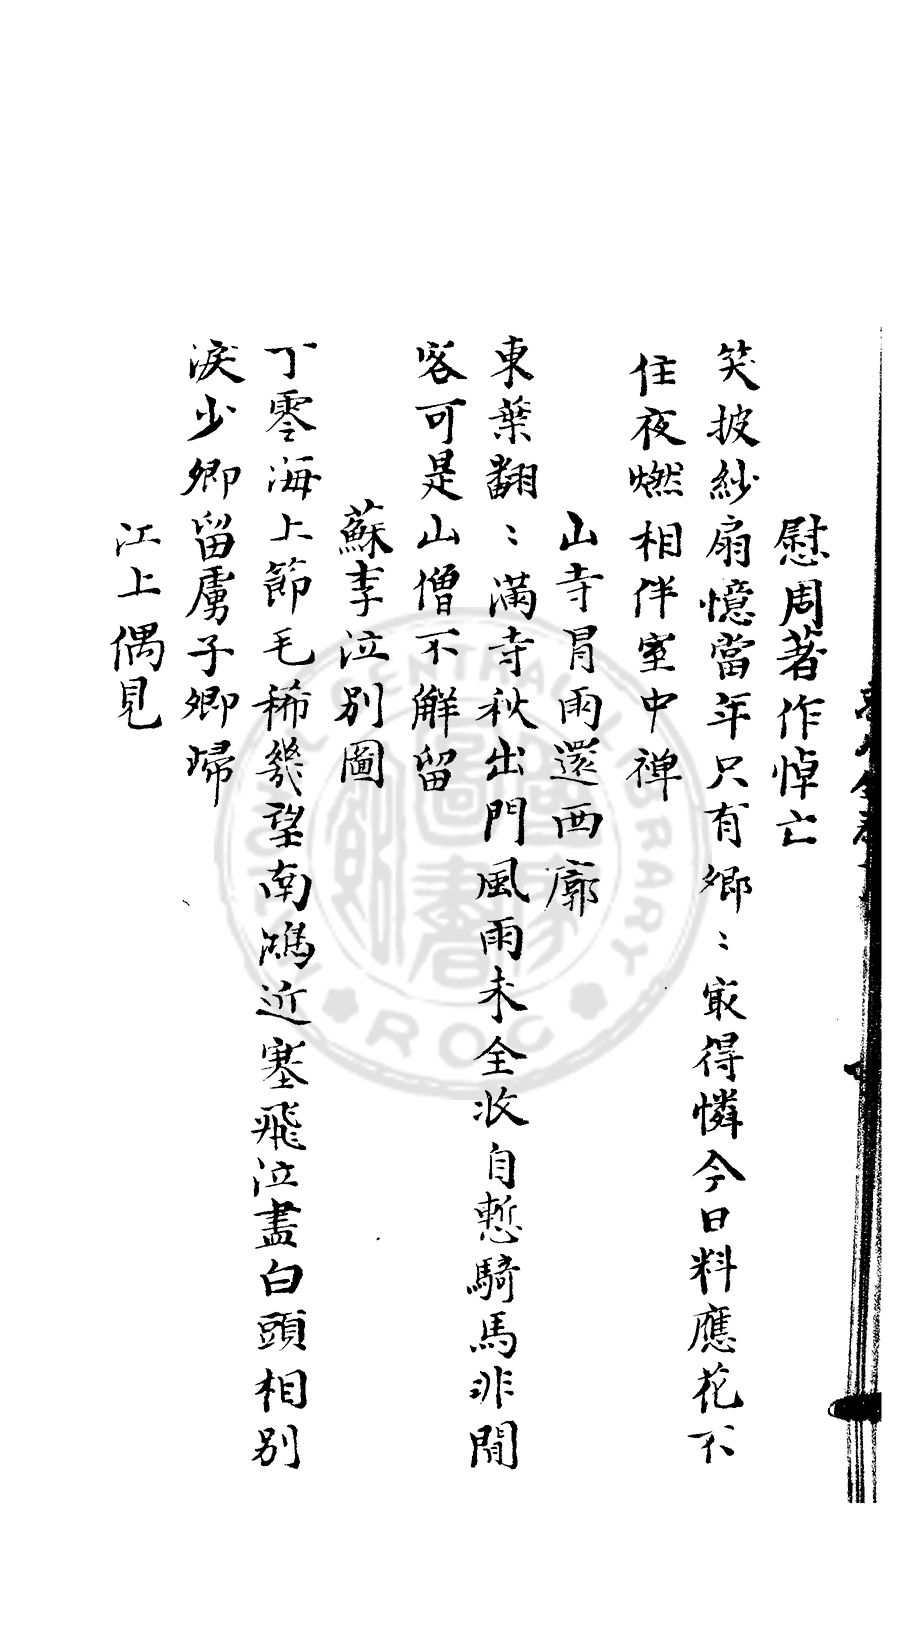 慰周著作悼亡
笑披紗扇憶當年只有鄉〻㝡得憐今日料應花不
住夜燃相伴室中禅
山寺冐雨還西廓
東葉翻〻滿寺秋出門風雨未全收自慙騎馬非閒
客可是山僧不解留
蘇李泣別圖
丁零海上節毛稀幾望南鴻近塞飛泣盡白頭相別
淚少卿留虜子卿歸
江上偶見
CENTRAL LIBRARY
ROC